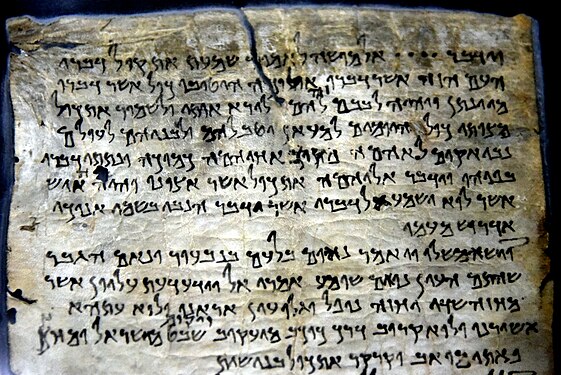 וידבר •••• אל מושה לאמור שמעת את קול דברי
העם הזה אשר דברו אליכה היטיבו כול אשר דברו
מי ינתן ויהיה לבבם זה להם לירא אותי ולשמור את כול
מצותי כול היומים למעאן יטב להם ולבניהם לעולם
נבי אקים לאהמה מקרב אחיהמה כמוכה ונתתי דברי
בפיהו וידבר אליהמה את כול אשר אצונו והיה האיש
אשר לוא ישמע אל דברי אשר ידבר הנבי בשמי אנוכי
אדרוש מעמו
וישא משלו ויאמר נאום בלעם בנבעור ונאם הגבר
שהתם העין נואם שומע אמרי אל וידע דעת עליון אשר
מחזה שדי יחזה נופל וגלו עין אראנו ולוא עתהא
אשורנו ולוא קרוב דרך כוכב מיעקוב ויקום שבט מישראל ומחץ
פאתי מואב וקרקר את כול בני שית